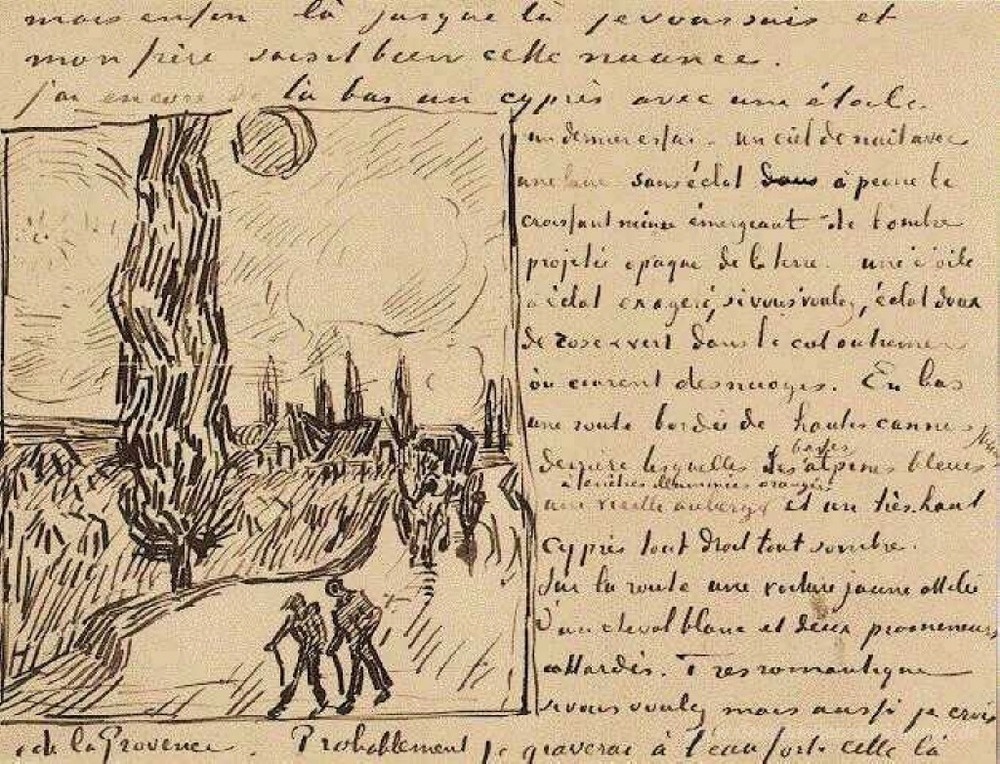 mais enfin là jusque là je vous suis et
mon père saisit bien cette nuance.
j'ai encore de là bas un cyprès avec une étoile
un dernier essai. un ciel de nuit avec
une lune sans éclat dans à peine le
croissant mince émergeant de l'ombre
projetée opaque de la terre. une étoile
à éclat exagéré, si vous voulez, éclat doux
de rose & vert dans le ciel outremer
où courent des nuages. En bas
une route bordée de hautes cannes
derrière lesquelles les basses alpines bleues
une vieille auberge à fenêtres illuminées orangée et un très haut
cyprès tout droit tout sombre.
Sur la route une voiture jaune attelée
d'un cheval blanc et deux promeneurs
attardés. Très romantique
si vous voulez mais aussi je crois
de la Provence. Probablement je graverai à l'eau forte celle là